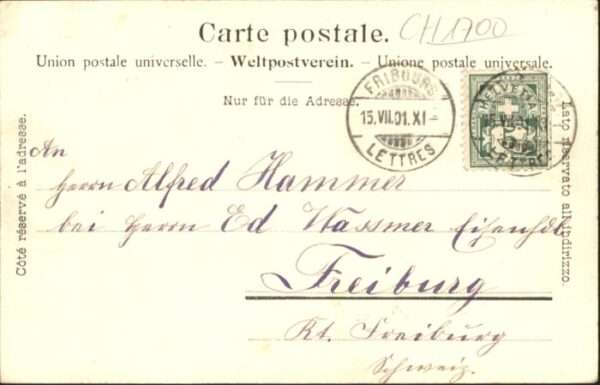 Carte postale.
CH1700
Union postale universelle. – Weltpostverein. – Unione postale universale.
Nur für die Adresse.
FRIBOURG
15.VII.01.XI
LETTRES
HELVETIA
LETTRES
Côté réservé à l'adresse.
Lato riservato all'indirizzo.
An
Herrn Alfred Hammer
bei Herrn Ed Wassmer Eisenhdl
Freiburg
Kt. Freiburg
Schweiz.